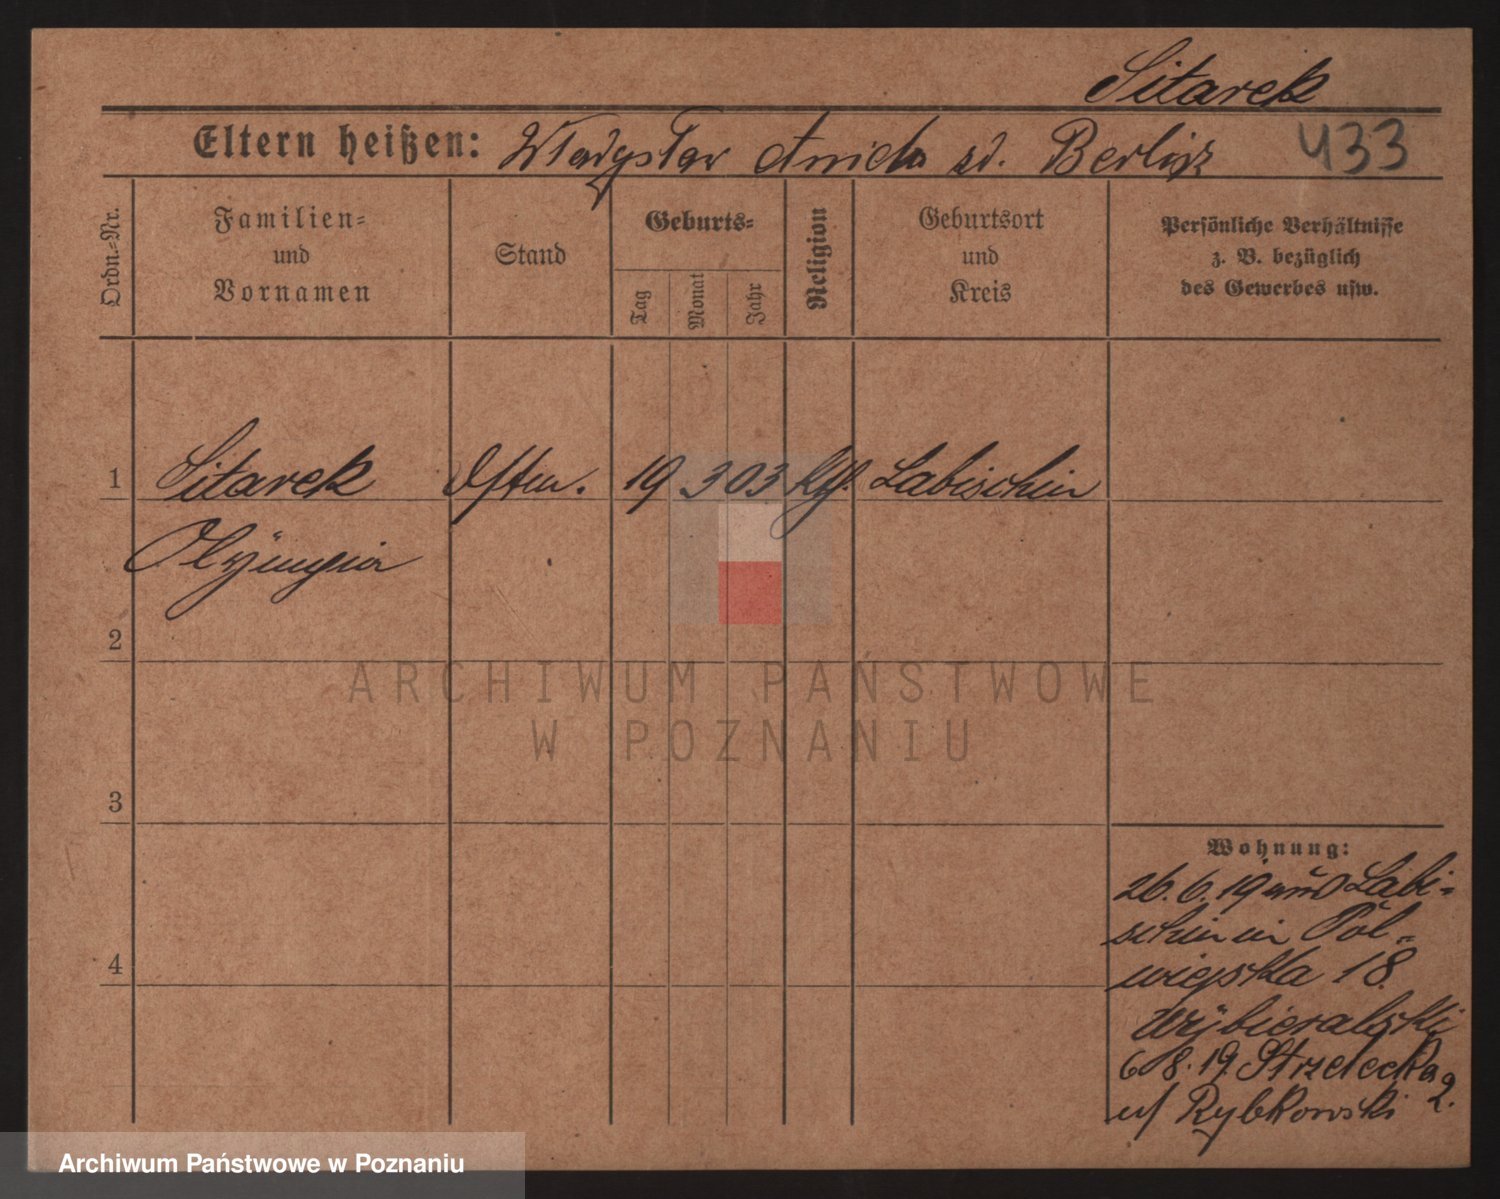 Sitarek
Eltern heißen: Władysław Aniela zd. Berlisz 433
Ordn.=Nr.
Familien=
und
Vornamen
Stand
Geburts=
Tag
Monat
Jahr
Religion
Geburtsort
und
Kreis
Persönliche Verhältnisse
z. B. bezüglich
des Gewerbes usw.
1 Sitarek 19 3 03 Labischin
Olÿmpia
2
ARCHIWUM PAŃSTWOWE
W POZNANIU
3
Wohnung:
26.6.19 Labi=
schin in Pół=
wiejska 18.
Wÿbieralski
6 8.19 Strzelecka 2.
Rybkowski
4
Archiwum Państwowe w Poznaniu